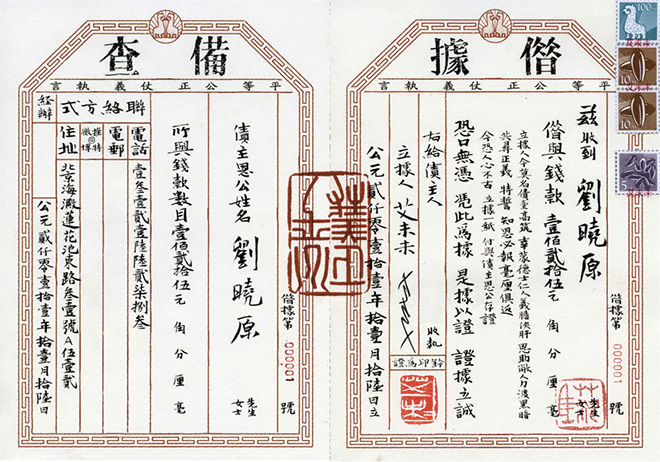 借據
平等公正仗義執言
茲收到 劉曉原
先生
女士
借與錢款 壹佰貳拾伍元 角 分 厘 毫
立據人今莫名債重高築 幸蒙德士仁人義膽俠肝 思助敵人力渡黑暗
共尋正義 特誓 知恩必報 毫厘俱返
今恐人心不古 立據一紙 付與債主恩公存證
恐口無憑 憑此為據 是據以證 證據立誠
右給債主人 收執
立據人 艾未未
公元貳仟零壹拾壹年拾壹月拾陸日立
鈐印為證
借據第 000001 號
100
10
10
5
備查
平等公正仗義執言
債主恩公姓名 劉曉原
先生
女士
所與錢款數目 壹佰貳拾伍元 角 分 厘 毫
聯絡方式
電話 壹叁壹貳壹陸陸貳柒捌叁
電郵
推特 微博
住址 北京海澱蓮花池東路叁壹號A伍壹貳
經辦 公元貳仟零壹拾壹年拾壹月拾陸日
借據第 000001 號